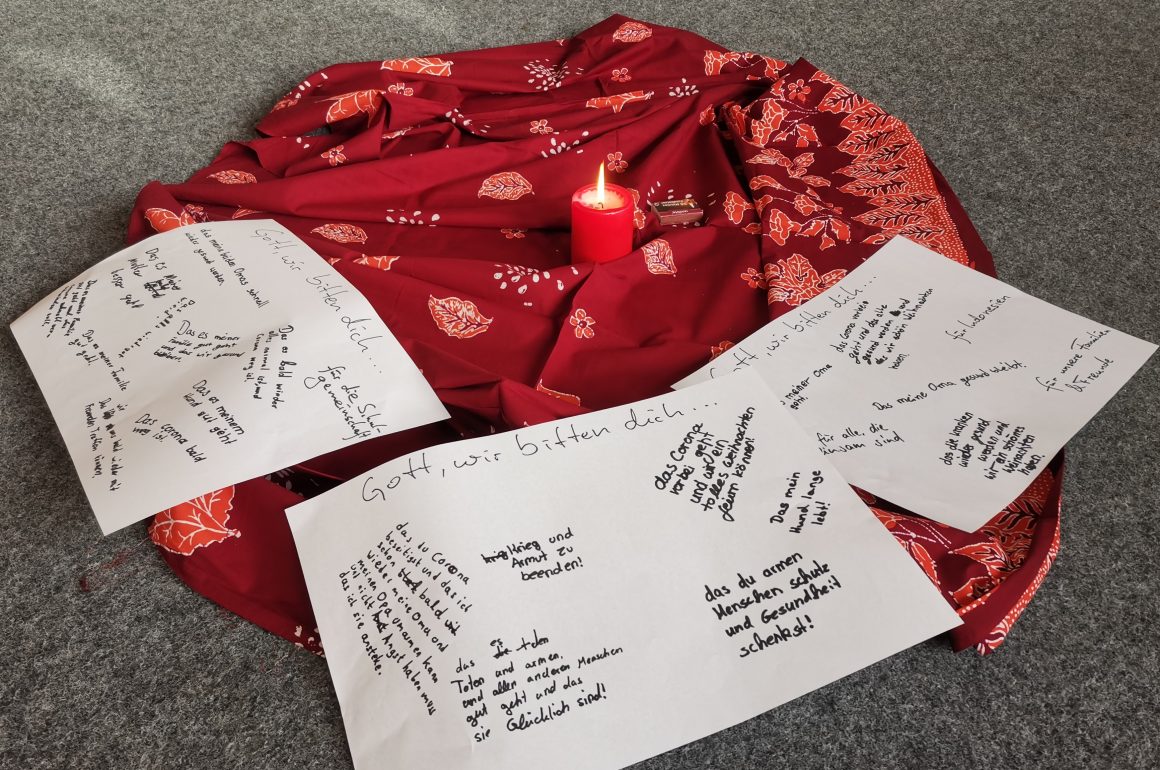 Gott, wir bitten dich...
das meine beiden Omas schnell
wieder gesund werden.
Das es meiner
Mutter bald
besser geht
Das es meiner
Familie gut geht
Das es bald wieder
für die Schul-
gemeinschaft
Das es meiner Familie
gut geht.
Das es meinem
Hund gut geht!
Das corona
bald
ist!
Gott, wir bitten dich...
das Corona
vorbei geht
und wir ein
tolles Weihnachten
feiern können!
Das mein
Hund lange
lebt!
Krieg und
Armut zu
beenden!
das du Corona
beseitigst und das ich
schon bald
wieder meine Oma und
meinen Opa umarmen kann
und nicht Angst haben muss
das ich sie anstecke.
das es den
Toten und armen,
und allen anderen Menschen
gut geht und das
sie Glücklich sind!
das du armen
Menschen schutz
und Gesundheit
schenkst!
Gott, wir bitten dich...
das Corona
für Indonesien
meiner Oma
Das meine Oma gesund bleibt.
für unsere Familien
& Freunde
für alle, die
einsam sind
das die kranken
wieder gesund
werden und
wir ein schönes
Weihnachten
haben!